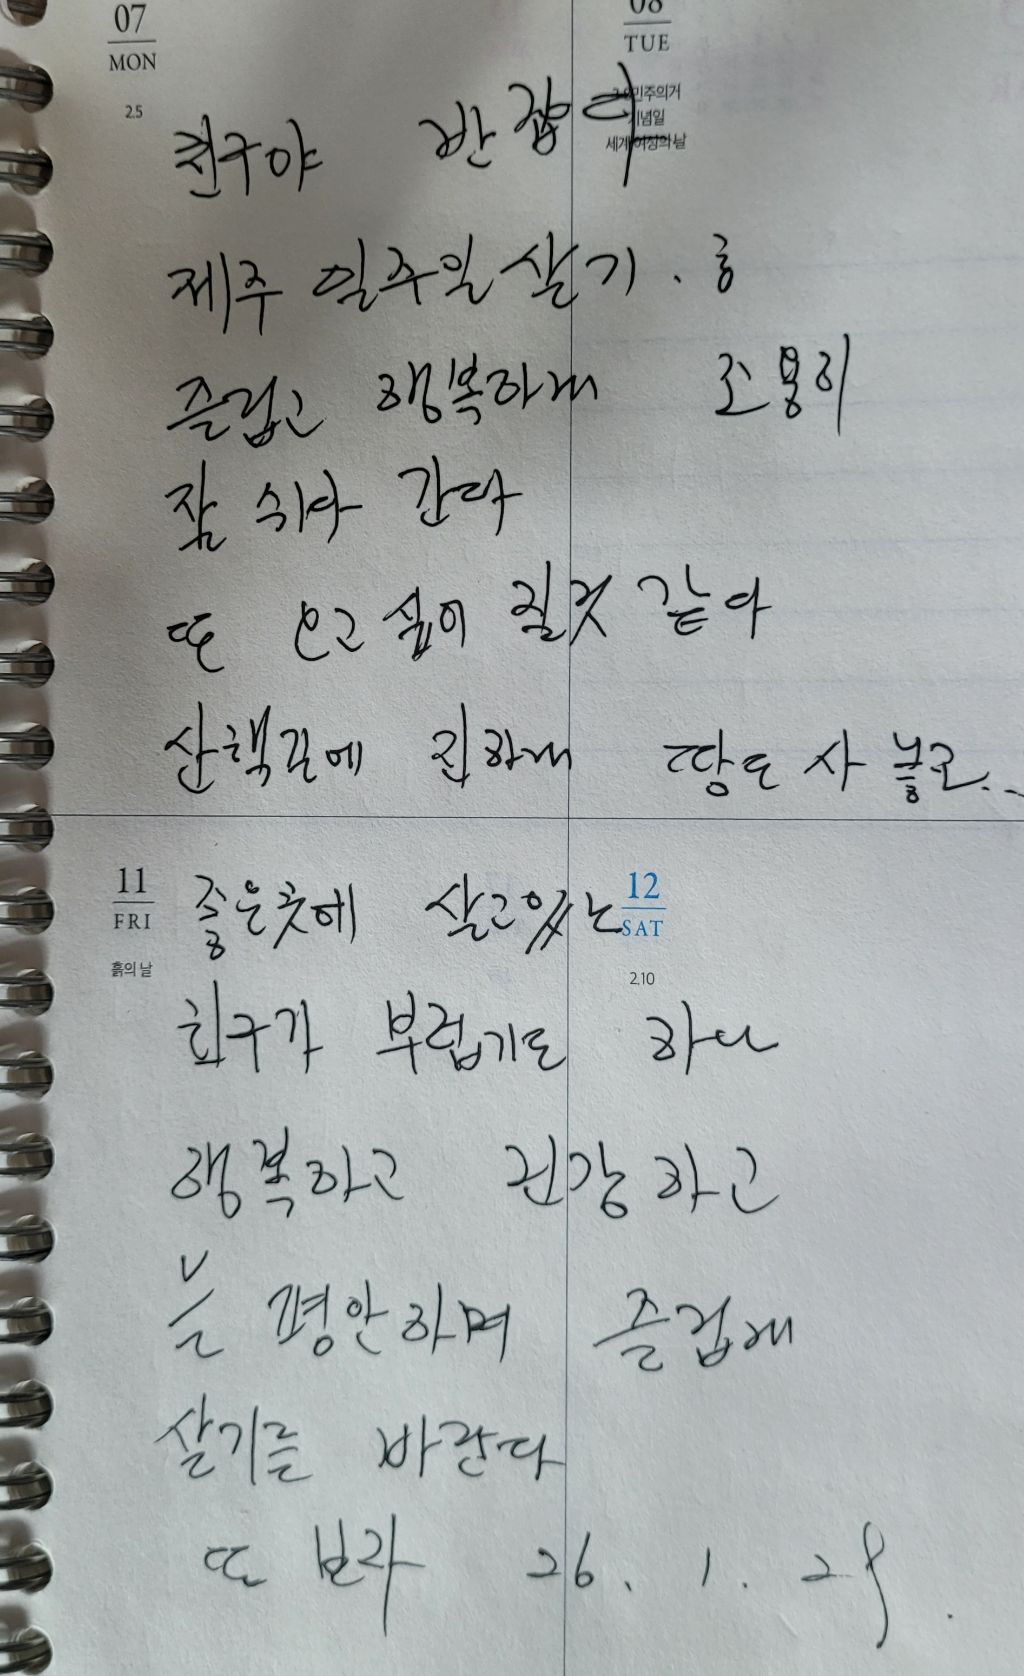 07
MON
2.5
08
TUE
3.8민주의거
기념일
세계 여성의 날
친구야 반갑다
제주 일주일 살기.
즐겁고 행복하게 조용히
잘 쉬다 간다
또 오고 싶어 질것 같다
산책길에 진하게 땅도 사 놓고...
11
FRI
흙의 날
12
SAT
2.10
좋은곳에 살고있는
친구가 부럽기도 하나
행복하고 건강하고
늘 평안하며 즐겁게
살기를 바란다
또 보자 26. 1. 29.